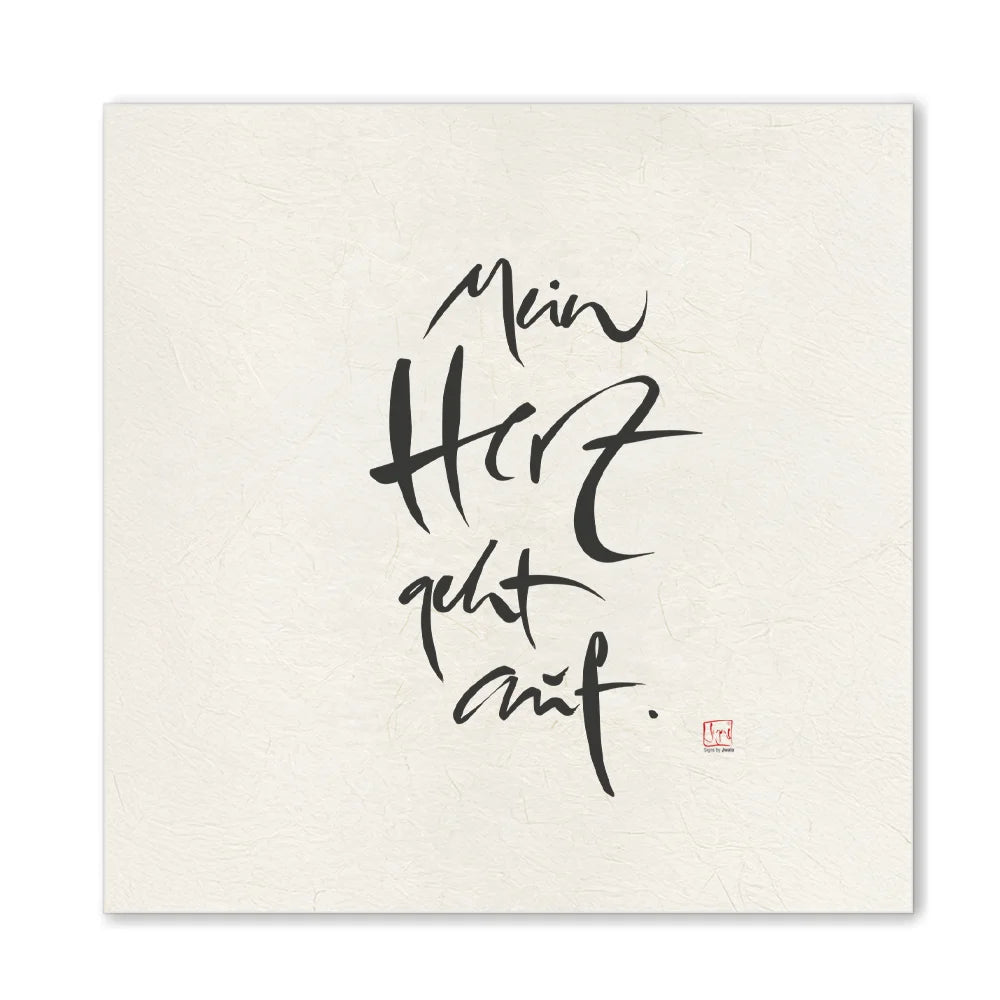 Mein
Herz
geht
auf.
Signs
Signs by Jwala